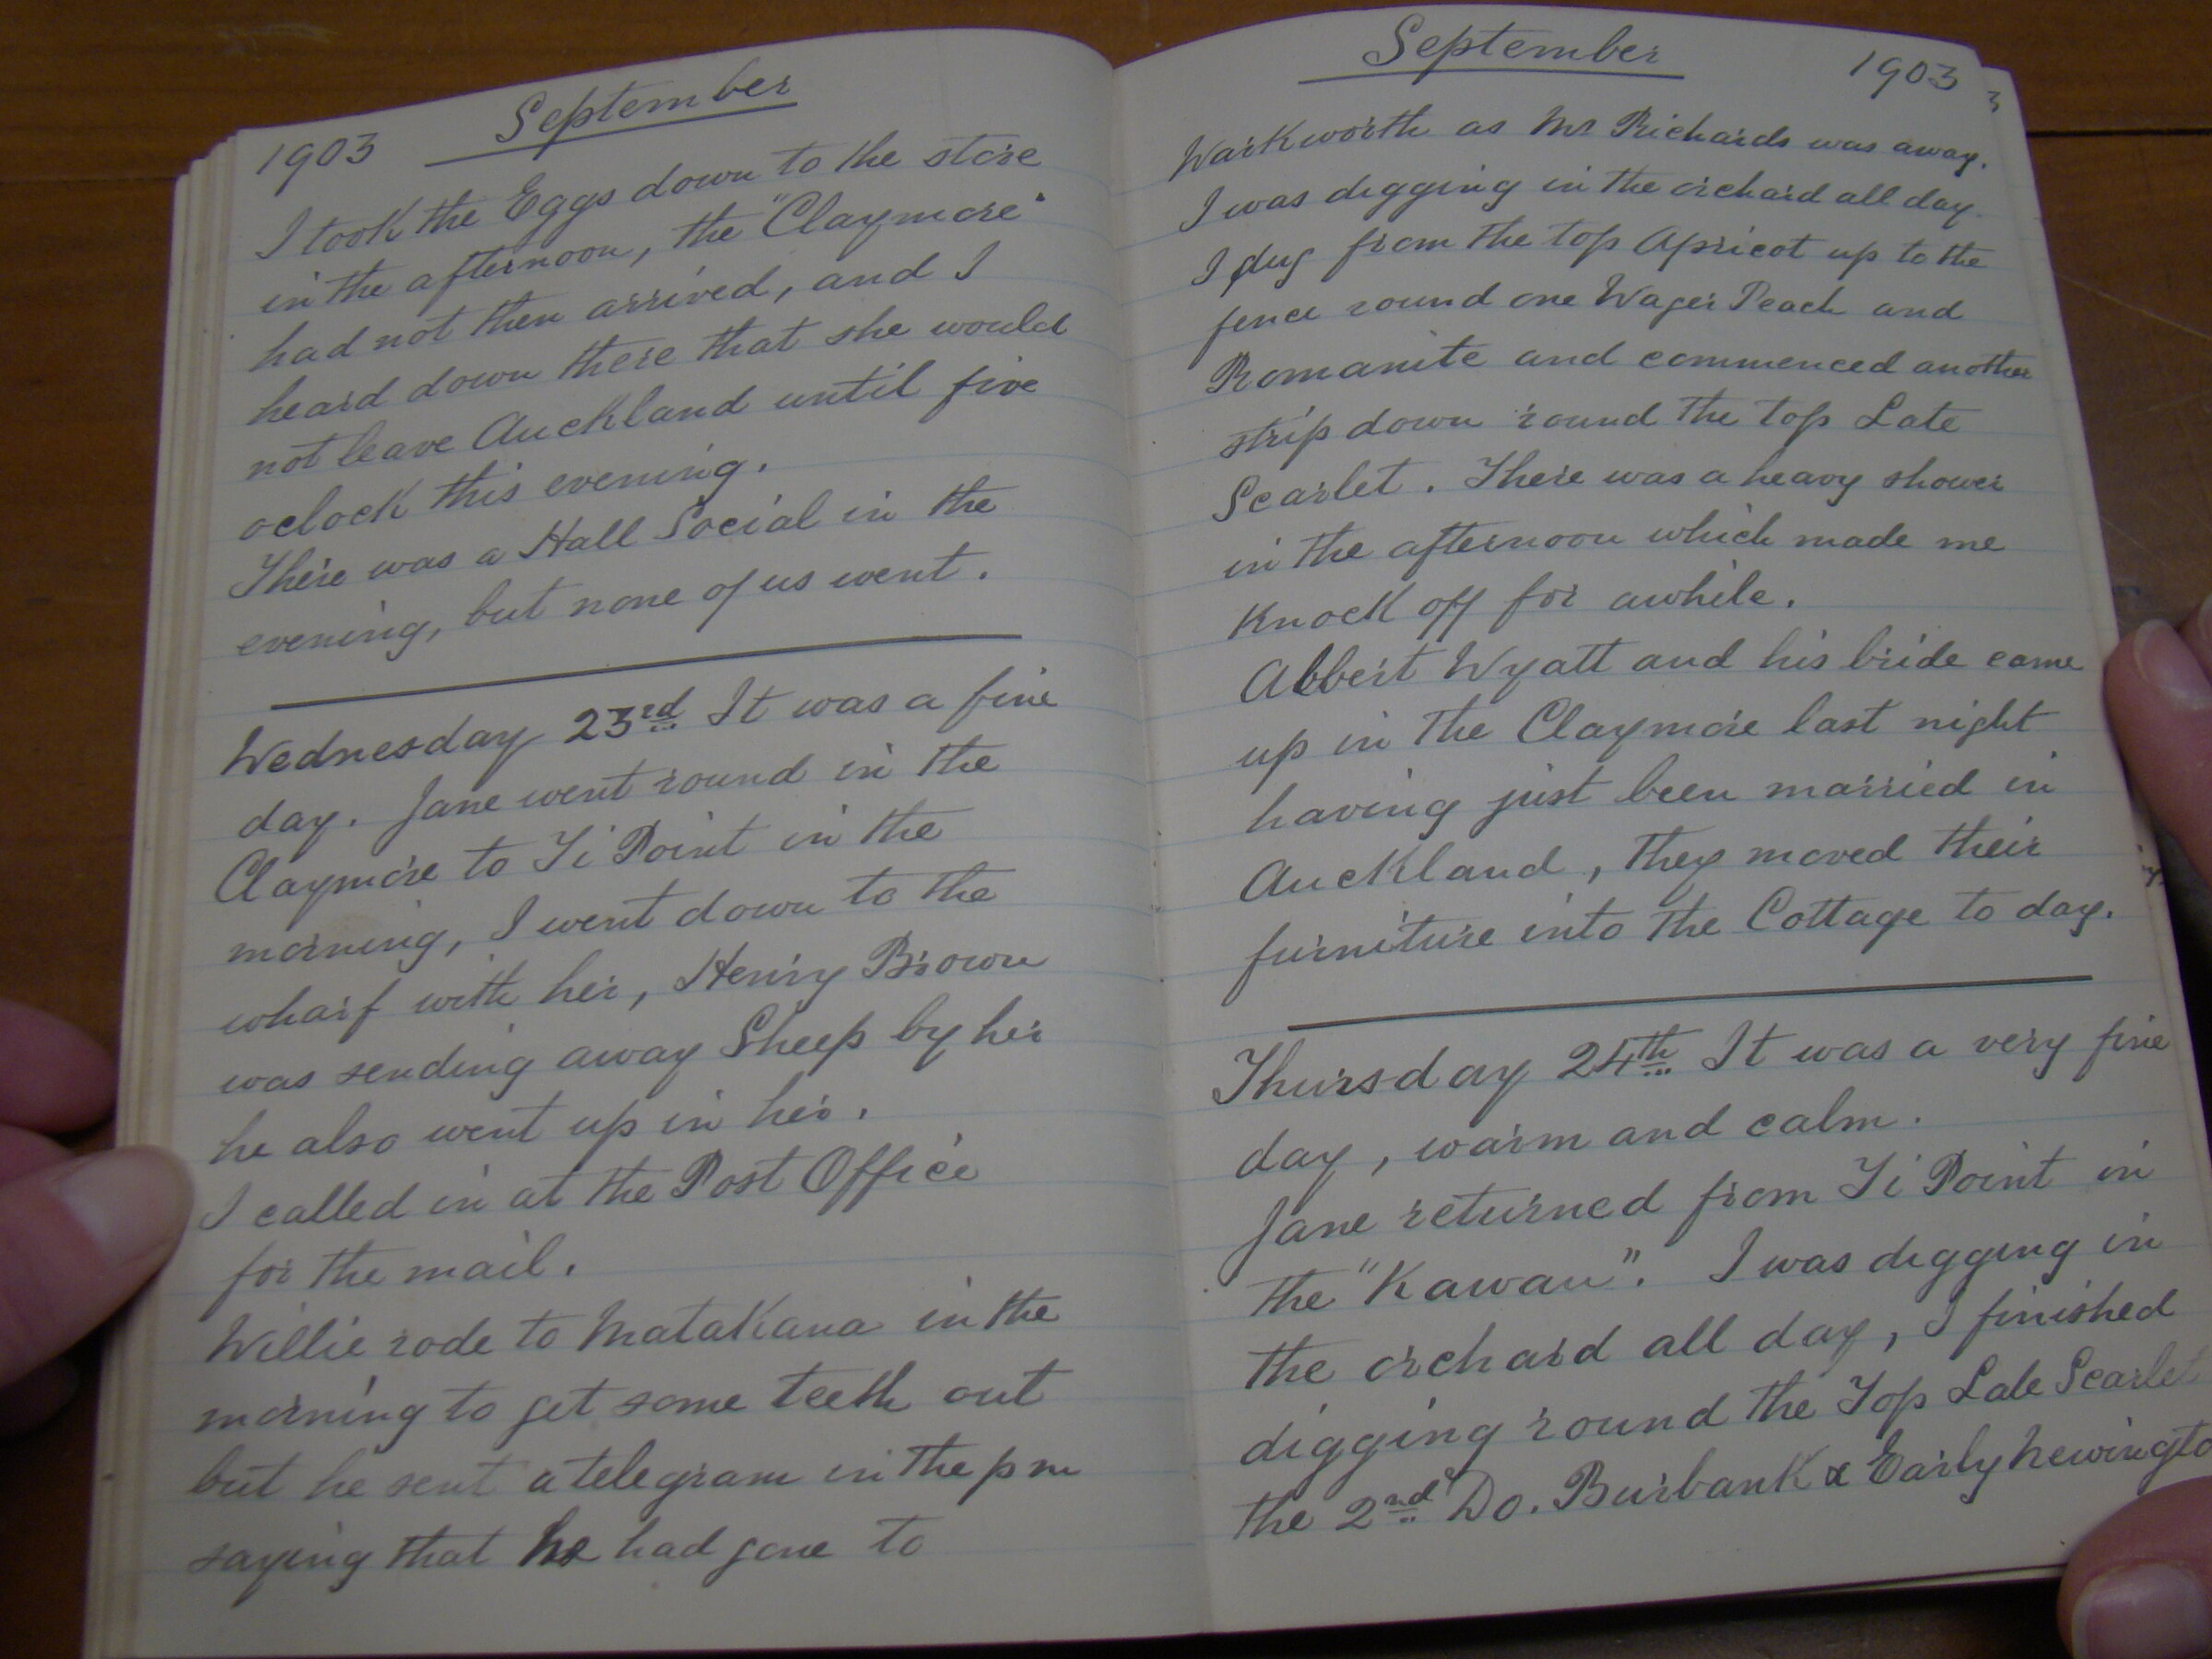 1903 September
I took the Eggs down to the store
in the afternoon, the "Claymore"
had not then arrived, and I
heard down there that she would
not leave Auckland until five
oclock this evening.
There was a Hall Social in the
evening, but none of us went.
Wednesday 23rd It was a fine
day. Jane went round in the
Claymore to Ti Point in the
morning, I went down to the
wharf with her, Henry Brown
was sending away Sheep by her
he also went up in her.
I called in at the Post Office
for the mail.
Willie rode to Matakana in the
morning to get some teeth out
but he sent a telegram in the pm
saying that he had gone to
September 1903
Warkworth as Mr Richards was away.
I was digging in the orchard all day.
I dug from the top Apricot up to the
fence round one Wager Peach and
Romanite and commenced another
strip down round the top Late
Scarlet. There was a heavy shower
in the afternoon which made me
knock off for awhile.
Albert Wyatt and his bride came
up in the Claymore last night
having just been married in
Auckland, they moved their
furniture into the Cottage to day.
Thursday 24th It was a very fine
day, warm and calm.
Jane returned from Ti Point in
the "Kawau". I was digging in
the orchard all day, I finished
digging round the Top Late Scarlet
the 2nd Do. Burbank &